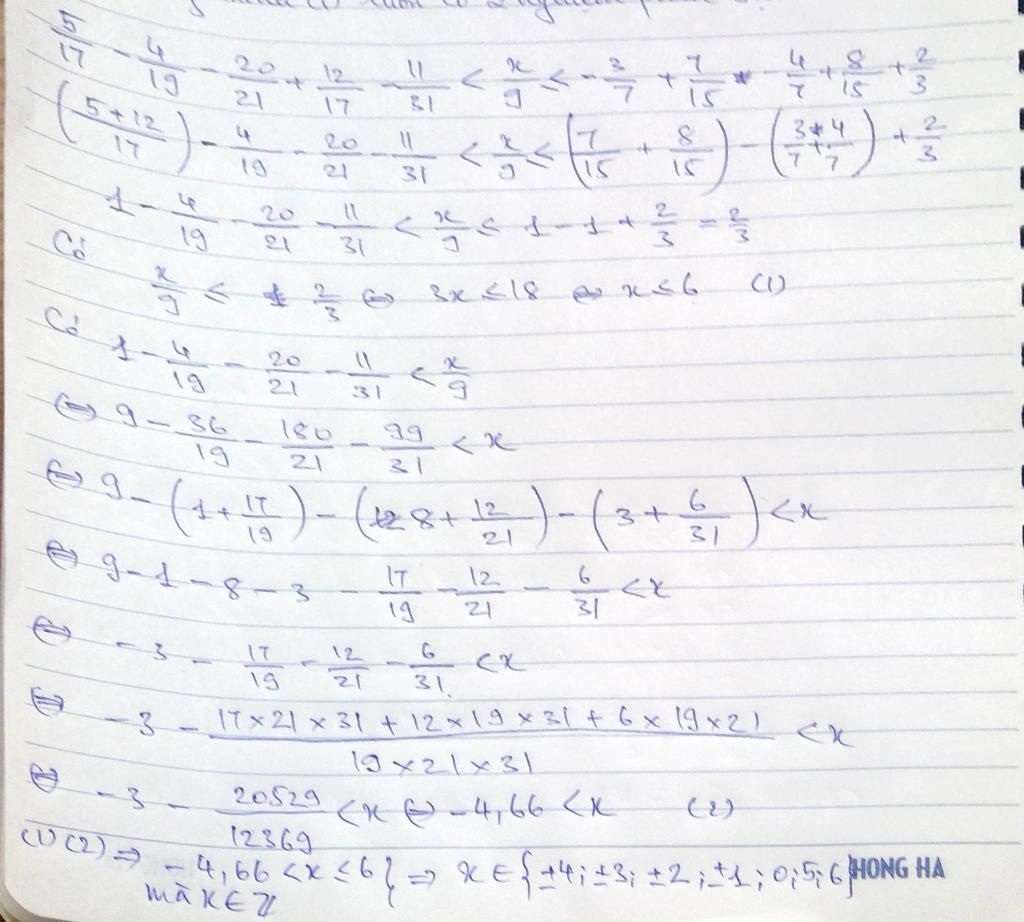 5/17 - 4/19 - 20/21 + 12/17 - 11/31 < x/9 ≤ -3/7 + 7/15 - 4/7 + 8/15 + 2/3
((5+12)/17) - 4/19 - 20/21 - 11/31 < x/9 ≤ (7/15 + 8/15) - (3/7 + 4/7) + 2/3
1 - 4/19 - 20/21 - 11/31 < x/9 ≤ 1 - 1 + 2/3 = 2/3
Có
x/9 ≤ 2/3 ⇔ 3x ≤ 18 ⇔ x ≤ 6 (1)
Có
1 - 4/19 - 20/21 - 11/31 < x/9
⇔ 9 - 36/19 - 180/21 - 99/31 < x
⇔ 9 - (1 + 17/19) - (8 + 12/21) - (3 + 6/31) < x
⇔ 9 - 1 - 8 - 3 - 17/19 - 12/21 - 6/31 < x
⇔ -3 - 17/19 - 12/21 - 6/31 < x
⇔ -3 - (17×21×31 + 12×19×31 + 6×19×21)/(19×21×31) < x
⇔ -3 - 20529/12369 < x ⇔ -4,66 < x (2)
(1)(2) ⇒ -4,66 < x ≤ 6 } ⇒ x ∈ {±4; ±3; ±2; ±1; 0; 5; 6}
mà x ∈ Z
HONG HA